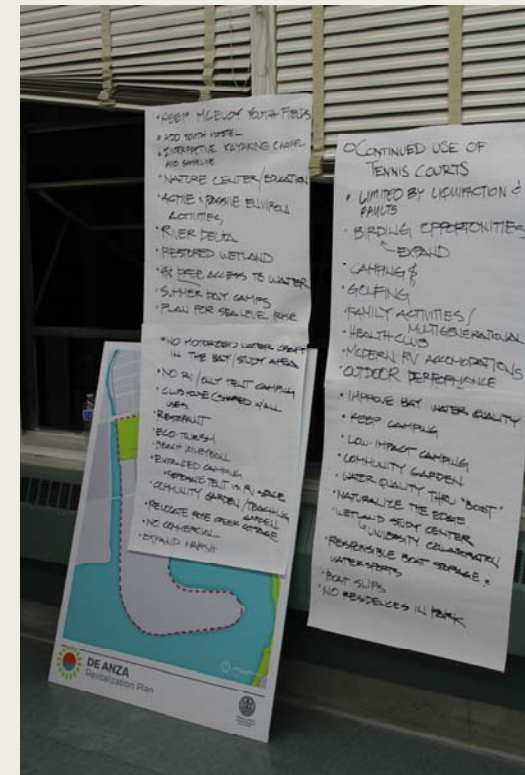 • KEEP MCEVOY YOUTH FIELDS
• ADD YOUTH HOSTEL
• INTERPRETIVE KAYAKING CHANNEL
AND
• NATURE CENTER/EDUCATION
• ACTIVE & PASSIVE ENVIRON.
ACTIVITIES
• RIVER DELTA
• RESTORED WETLAND
• FREE ACCESS TO WATER
• SUMMER DAY CAMPS
• PLAN FOR SEA LEVEL RISE
• NO MOTORIZED WATER CRAFT
IN THE BAY/STUDY AREA
• NO RV/ONLY TENT CAMPING
• CLUBHOUSE (SHARED W/ALL
USES)
• RESTAURANT
• ECO-TOURISM
• BEACH VOLLEYBALL
• EXTENDED CAMPING
• SEPARATE TENT VS RV SPACE
• COMMUNITY GARDEN/TEACHING
GARDEN
• RELOCATE ROSE CREEK COTTAGE
• NO COMMERCIAL
• EXPAND MARSH
CONTINUED USE OF
TENNIS COURTS
• LIMITED BY LIQUIFACTION &
FAULTS
• BIRDING OPPORTONITIES
EXPAND
• CAMPING &
• GOLFING
• FAMILY ACTIVITIES/
MULTIGENERATIONAL
• HEALTH CLUB
• MODERN RV ACCOMODATIONS
• OUTDOOR PERFORMANCE
• IMPROVE BAY WATER QUALITY
• KEEP CAMPING
• LOW-IMPACT CAMPING
• COMMUNITY GARDEN
• WATER QUALITY THRU "BOOST"
• NATURALIZE THE EDGE
• WETLAND STUDY CENTER
UNIVERSITY COLLABORATION
• RESPONSIBLE BOAT STORAGE &
WATERSPORTS
• BOAT SLIPS
• NO RESIDENCES IN PARK
DE ANZA
Revitalization Plan